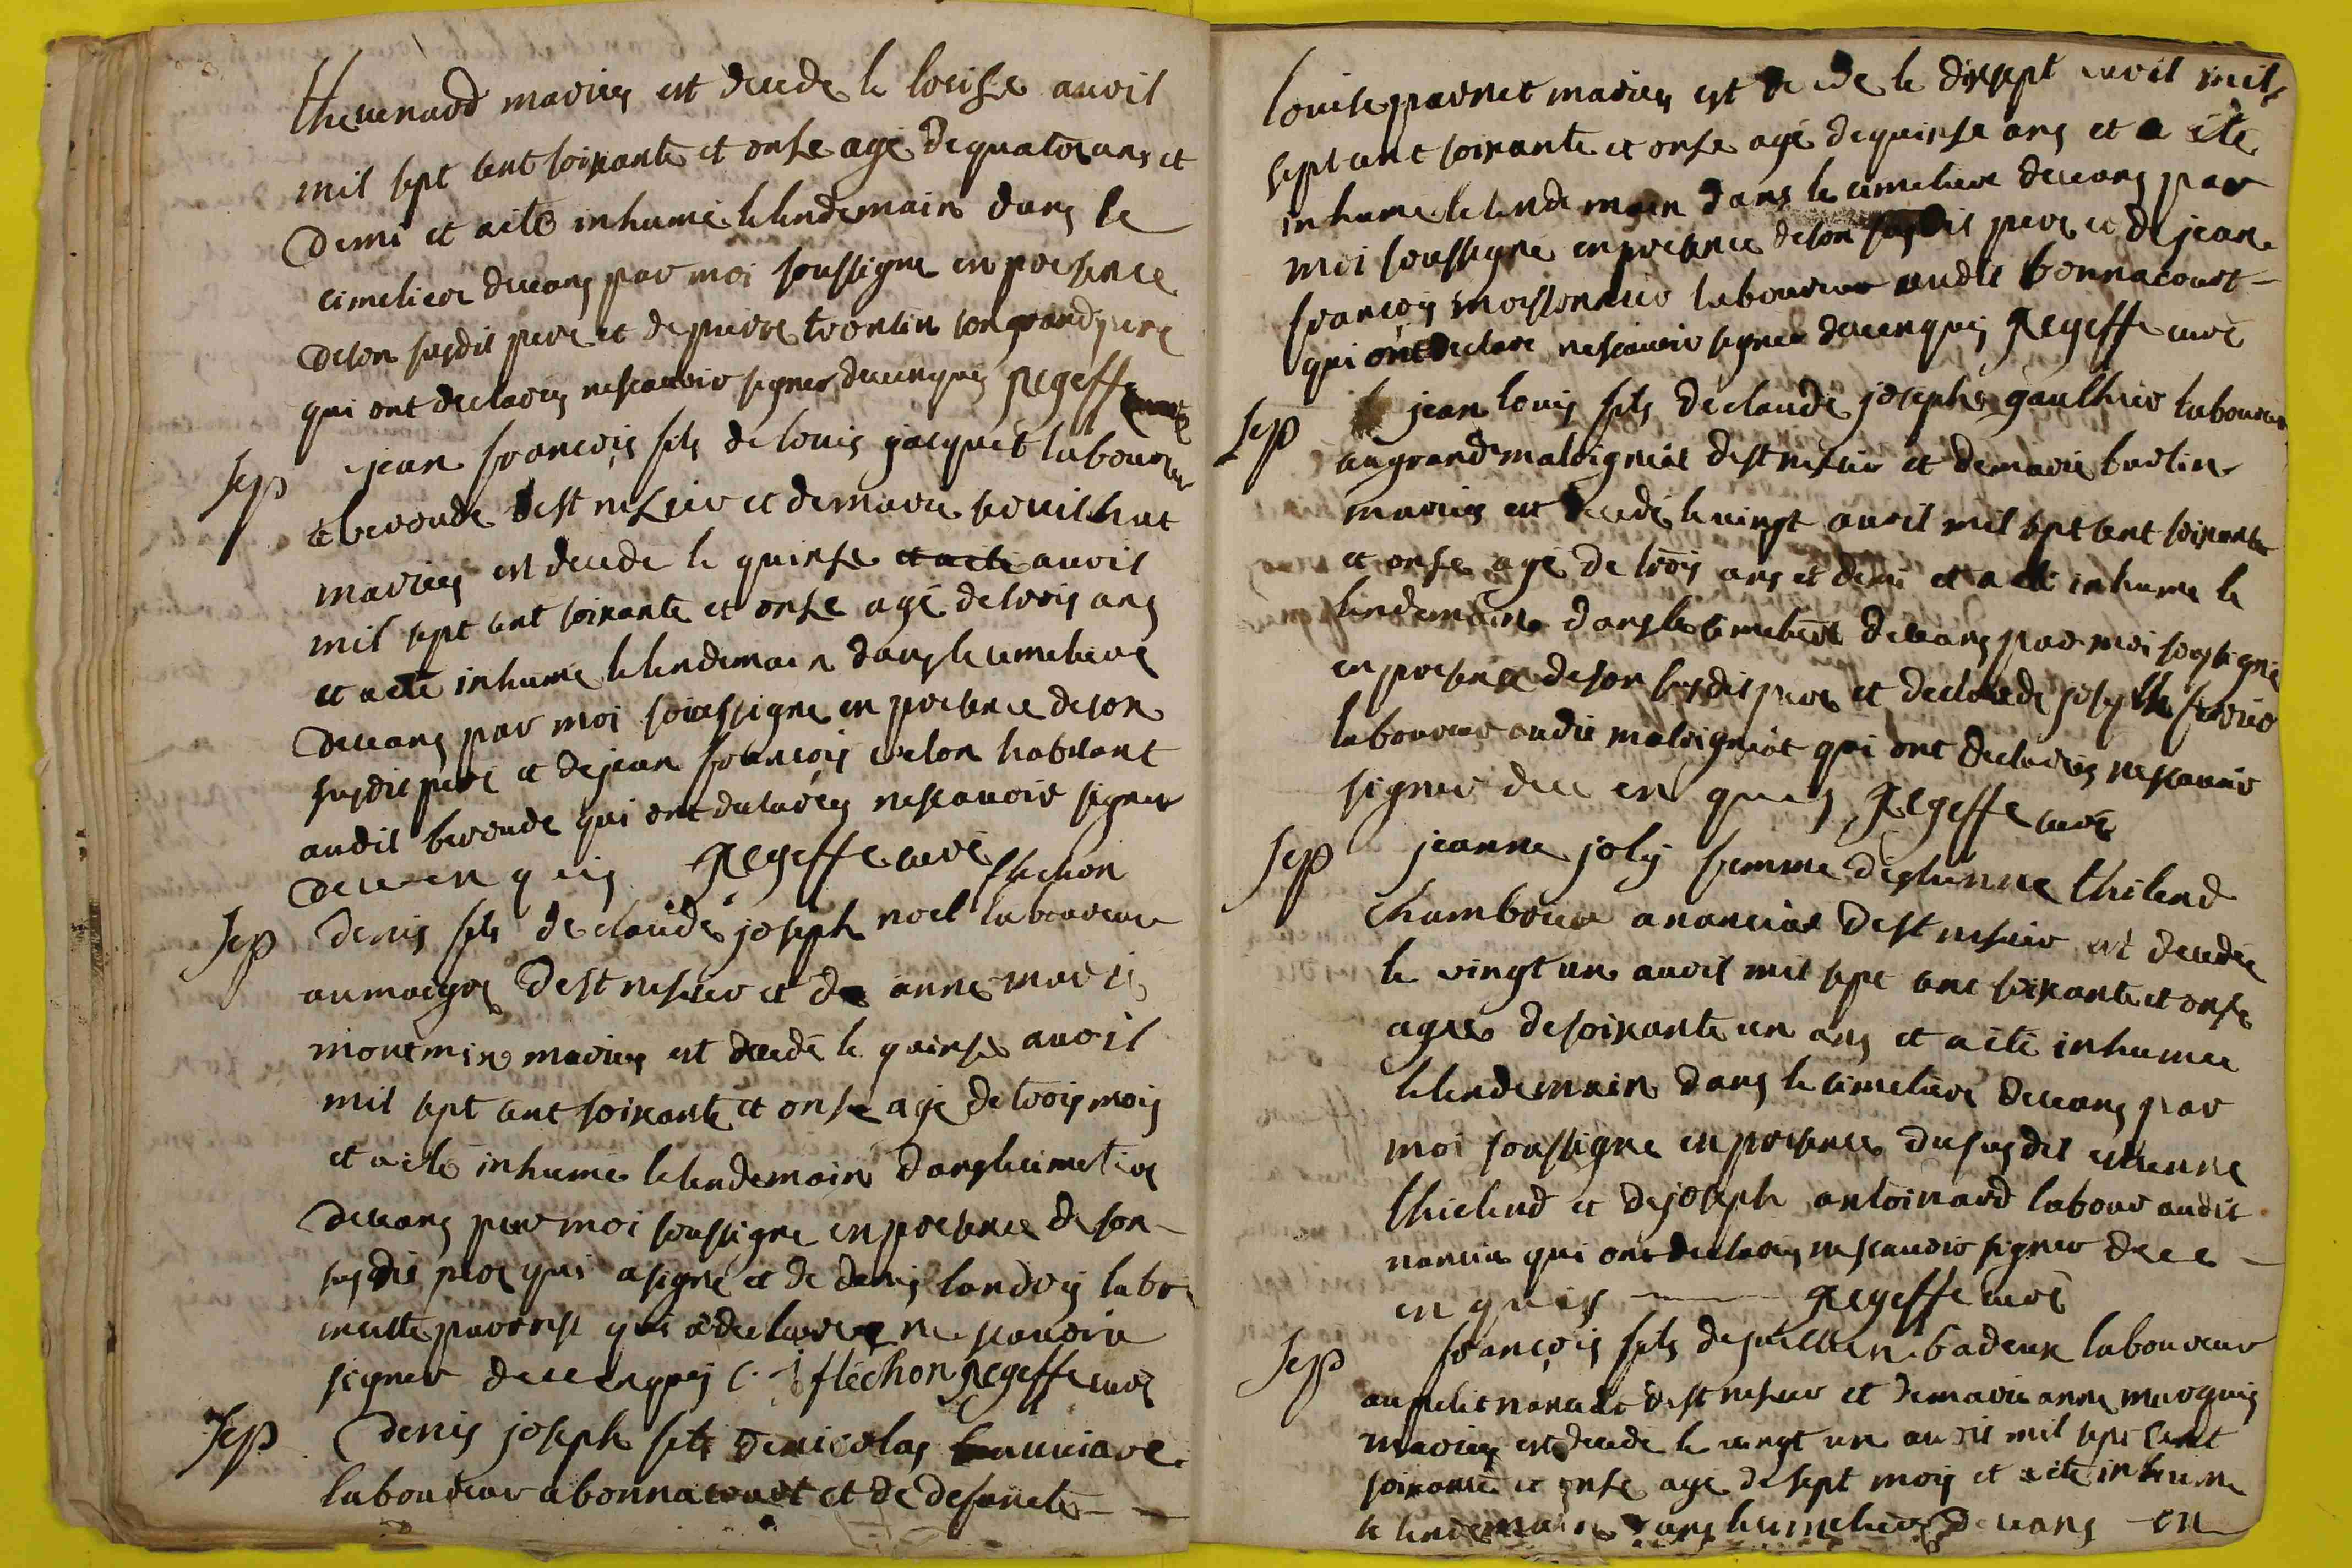 thevenard mariez est decede le treise avril
mil sept cent soixante et onse age de quatre ans et
demi et a ete inhume le lendemain dans le
cimetiere deceans par moi soussigne en presence
de son susdit pere et de pierre trontin son grand pere
qui ont declarez ne scavoir signer de ce enquis Regeffe
sep jean françois fils de louis jacquet laboureur
a beronde dest nesier et de marie
mariez est decede le quinse et a ete avril
mil sept cent soixante et onse age de trois ans
et a ete inhume le lendemain dans le cimetiere
deceans par moi soussigne en presence de son
susdit pere et de jean françois habitant
audit beronde qui ont declarez ne scavoir signer
de ce enquis Regeffe cure flechon
sep denis fils de claude joseph noel laboureur
au magny dest nesier et de anne marie
montmin mariez est decede le quinse avril
mil sept cent soixante et onse age de trois mois
et a ete inhume le lendemain dans le cimetiere
deceans par moi soussigne en presence de son
susdit pere qui a signe et de denis landry labr
en cette paroisse qui a declare ne scavoir
signer de ce enquis C. j flechon Regeffe cure
sep denis joseph fils de nicolas
laboureur a bonnacourt et de defuncte
louise parnet mariez est decede le disept avril mil
sept cent soixante et onse age de quinse ans et a ete
inhume le lendemain dans le cimetiere deceans par
moi soussigne en presence de son susdit pere et de jean
françois moissonnier laboureur audit bonnacourt
qui ont declare ne scavoir signer de ce enquis Regeffe cure
sep jean louis fils de claude joseph gaulthier laboureur
au grand malvigniat dest nesier et de marie bertin
mariez est decede le vingt avril mil sept cent soixante
et onse age de trois ans et demi et a ete inhume le
lendemain dans le cimetiere deceans par moi soussigne
en presence de son susdit pere et de claude joseph
laboureur audit malvigniat qui ont declarez ne scavoir
signer de ce enquis Regeffe cure
sep jeanne joly femme destienne thielend
a nanciat dest nesier est decedee
le vingt un avril mil sept cent soixante et onse
agee de soixante un ans et a ete inhumee
le lendemain dans le cimetiere deceans par
moi soussigne en presence du susdit estienne
thielend et de joseph antoinard labour audit
nancia qui ont declarez ne scavoir signer de ce
enquis Regeffe cure
sep françois fils de julien badeux laboureur
au petit nanciat dest nesier et de marie anne marquis
mariez est decede le vingt un avril mil sept cent
soixante et onse age de sept mois et a ete inhume
le lendemain dans le cimetiere deceans en